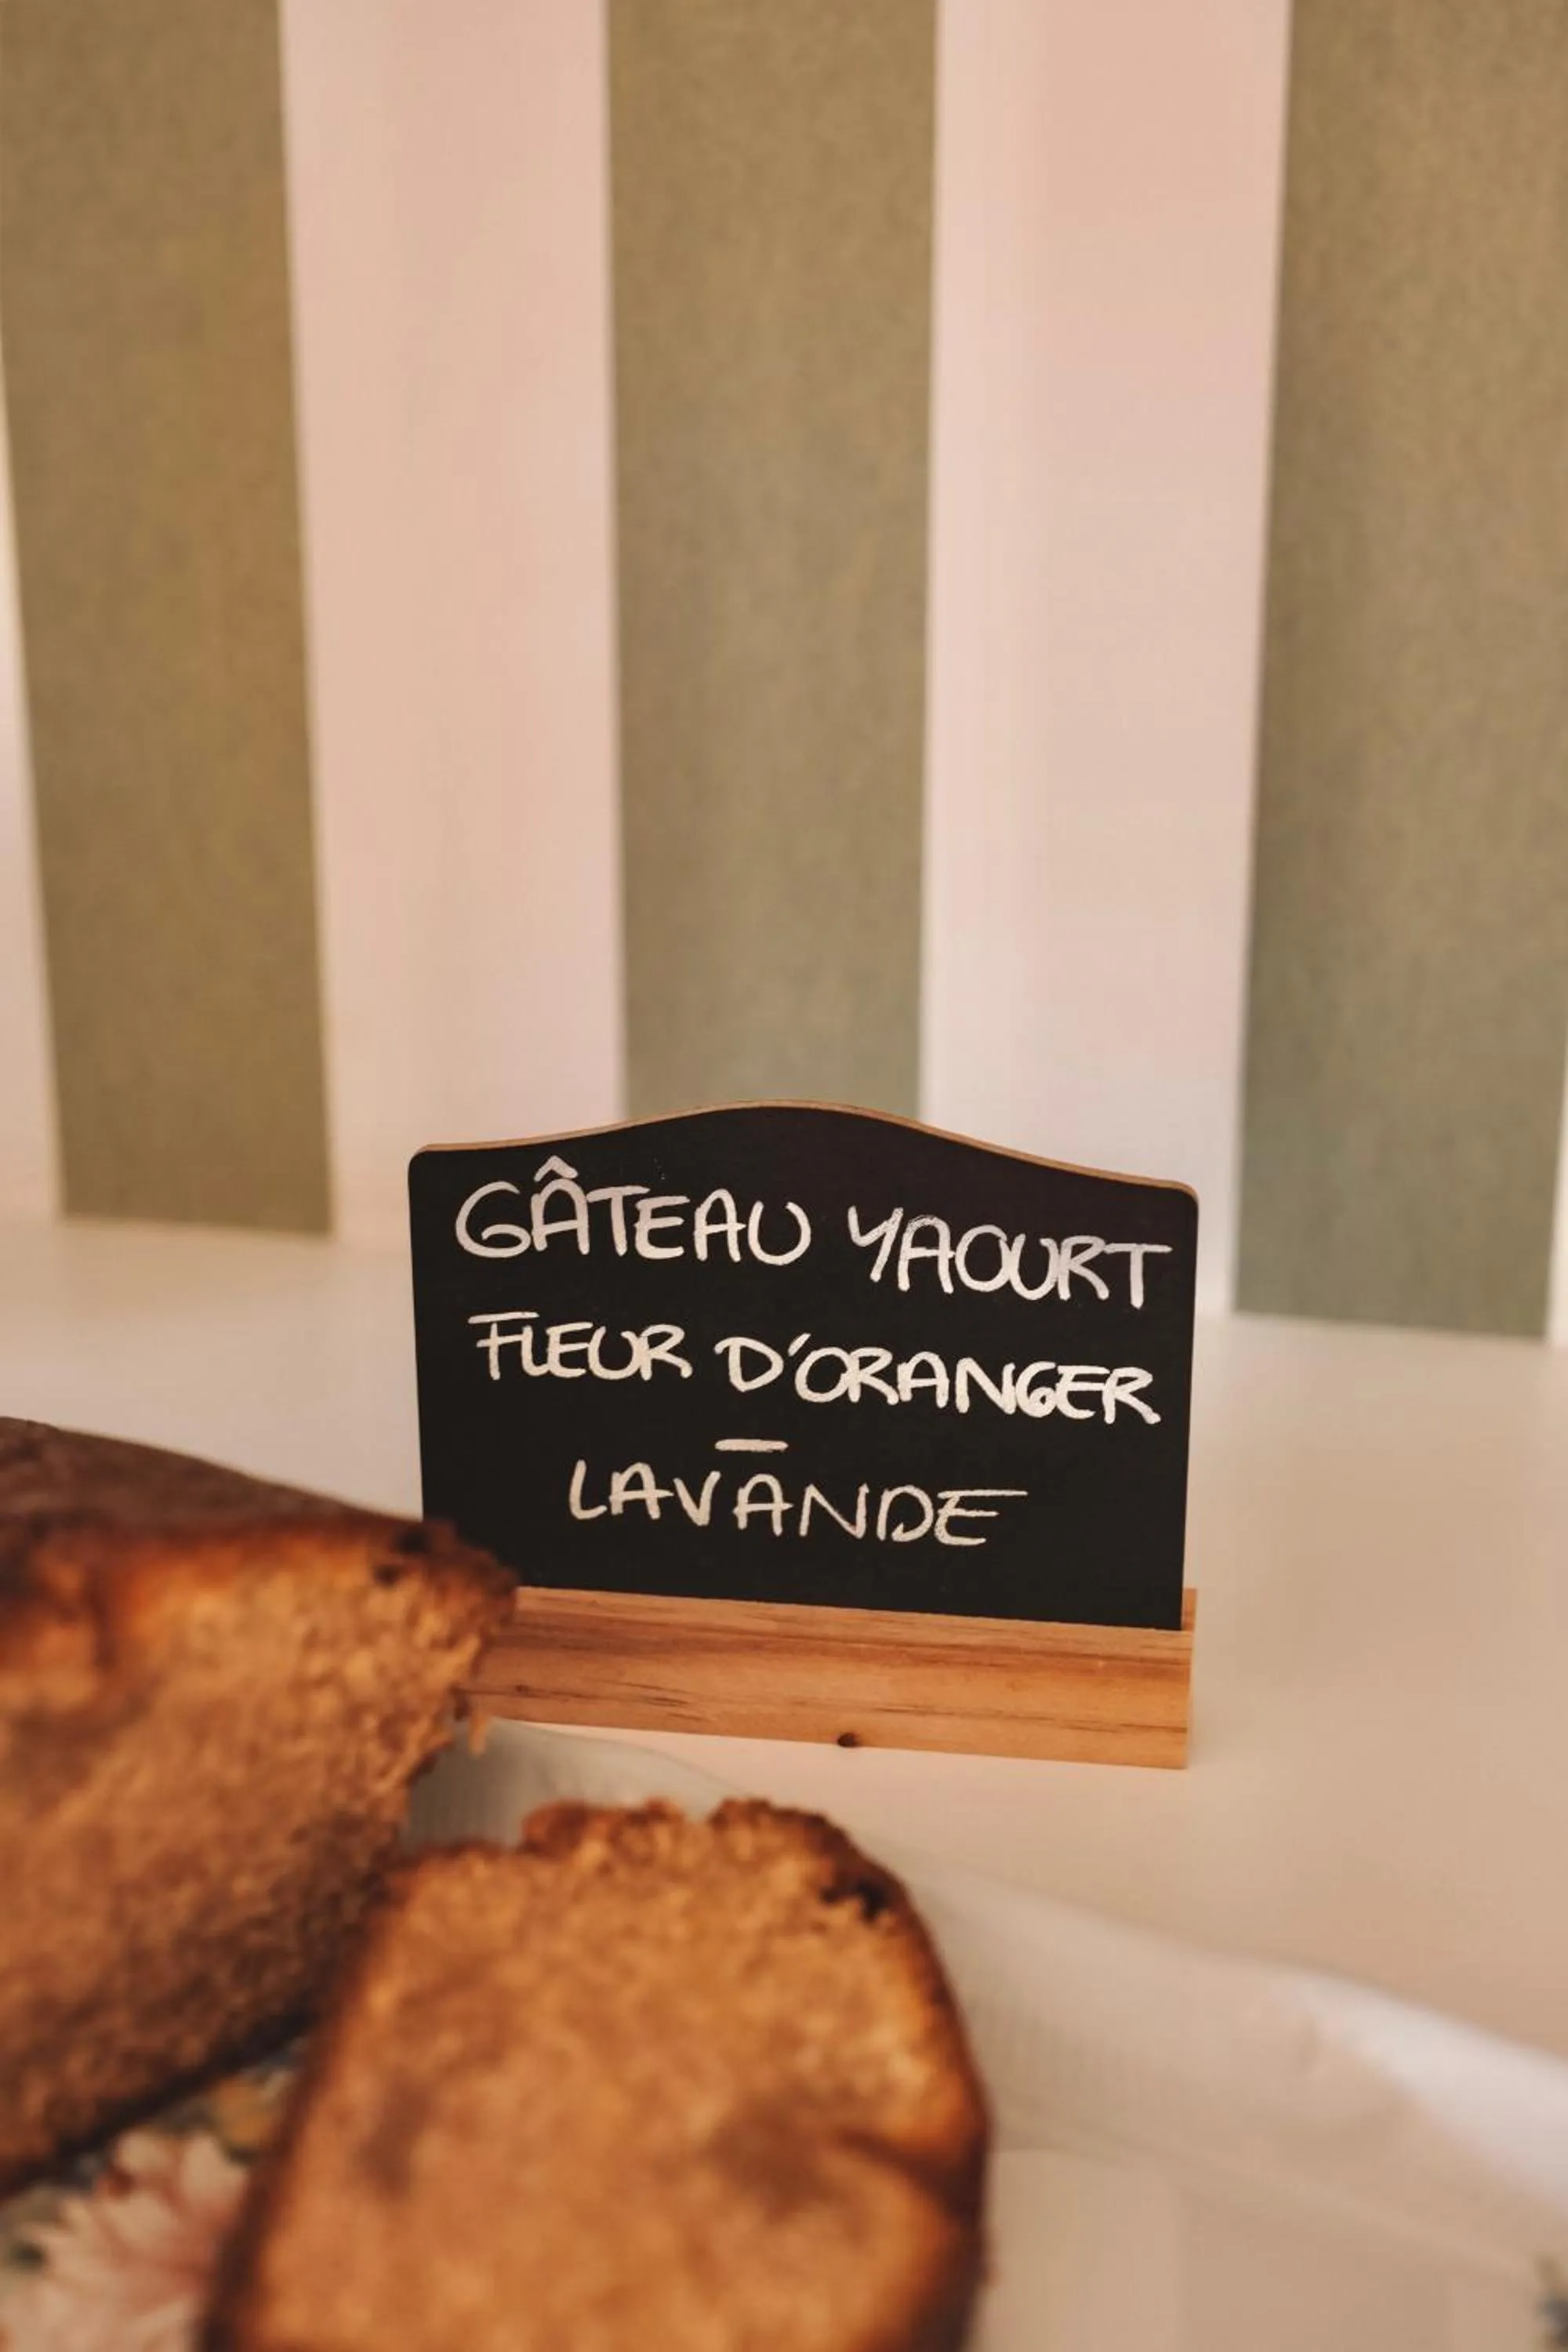 GÂTEAU YAOURT
FLEUR D'ORANGER
–
LAVANDE